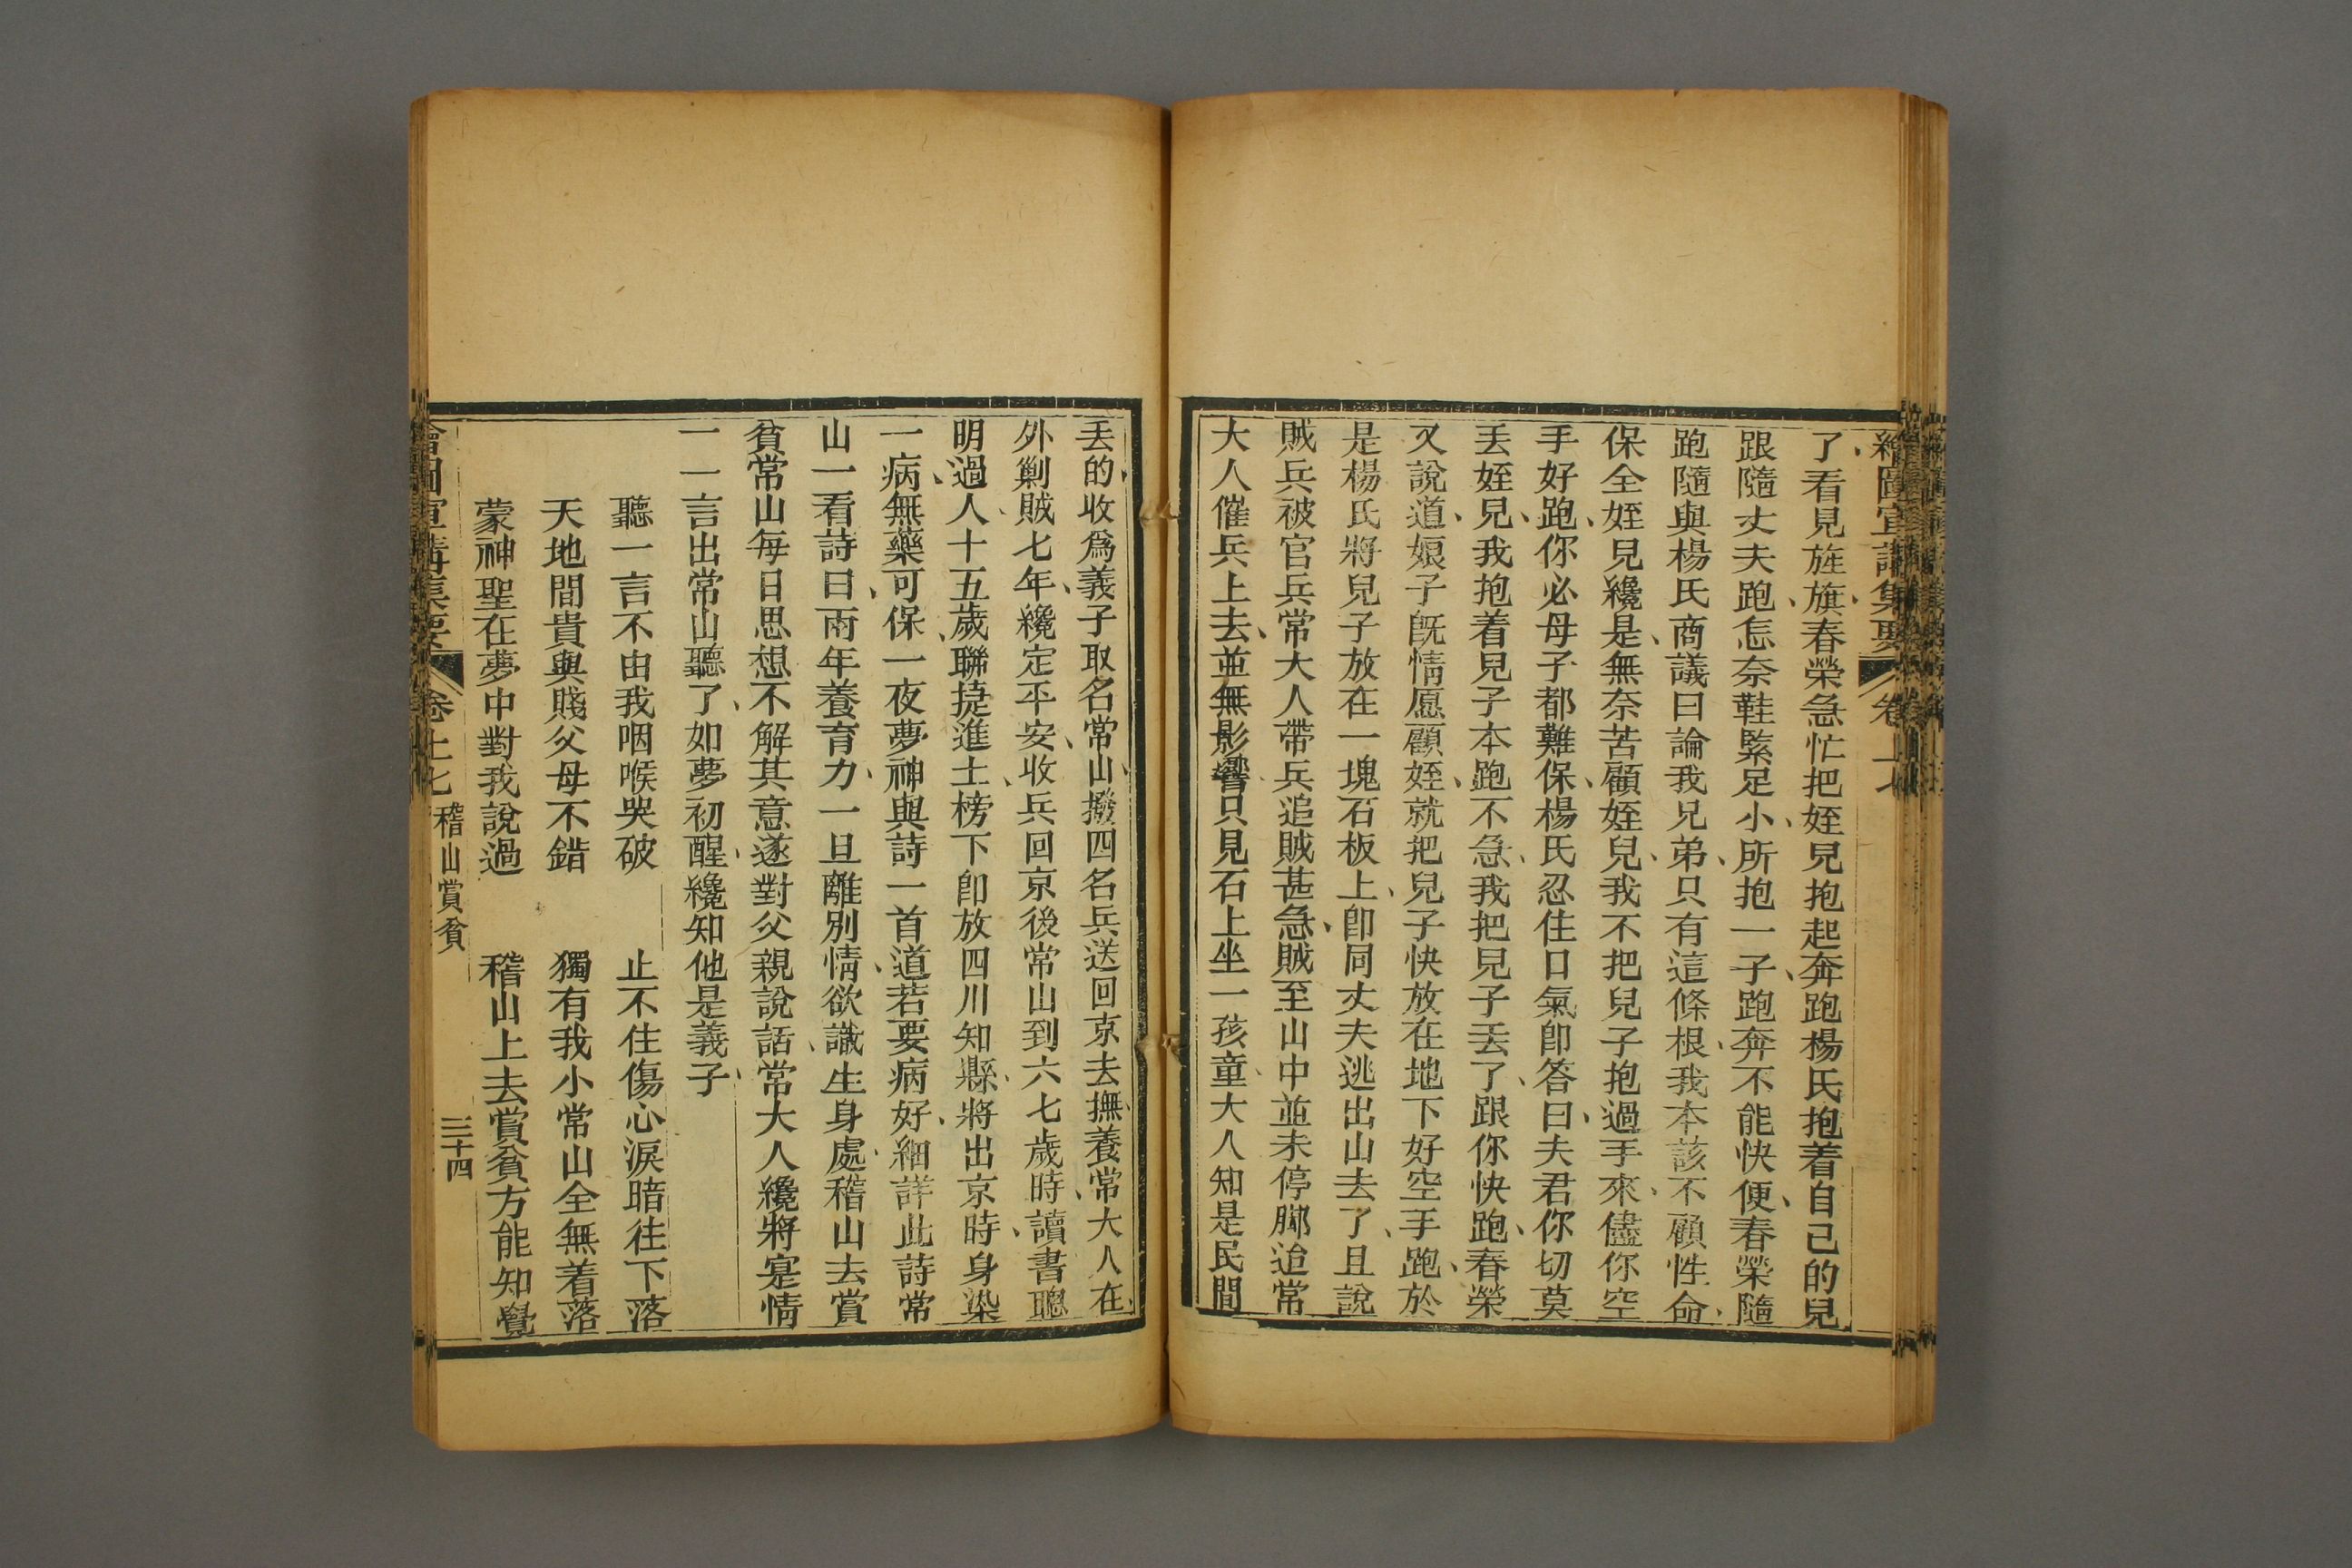 繪圖宣講集要 卷上七
了看見旌旗春榮急忙把姪兒抱起奔跑楊氏抱着自己的兒
跟隨丈夫跑怎奈鞋緊足小所抱一子跑奔不能快便春榮隨
跑隨與楊氏商議曰論我兄弟只有這條根我本該不顧性命
保全姪兒纔是無奈苦顧姪兒我不把兒子抱過手來儘你空
手好跑你必母子都難保楊氏忍住口氣卽答曰夫君你切莫
丢姪兒我抱着兒子本跑不急我把兒子丢了跟你快跑春榮
又說道娘子旣情愿顧姪就把兒子快放在地下好空手跑於
是楊氏將兒子放在一塊石板上卽同丈夫逃出山去了且說
賊兵被官兵常大人帶兵追賊甚急賊至山中並未停脚迨常
大人催兵上去並無影響只見石上坐一孩童大人知是民間
丢的收爲義子取名常山撥四名兵送回京去撫養常大人在
外剿賊七年纔定平安收兵回京後常山到六七歲時讀書聰
明過人十五歲聯捷進士榜下卽放四川知縣將出京時身染
一病無藥可保一夜夢神與詩一首道若要病好細詳此詩常
山一看詩曰兩年養育力一旦離別情欲識生身處稽山去賞
貧常山每日思想不解其意遂對父親說話常大人纔將寔情
一一言出常山聽了如夢初醒纔知他是義子
聽一言不由我咽喉哭破 止不住傷心淚暗往下落
天地間貴與賤父母不錯 獨有我小常山全無着落
蒙神聖在夢中對我說過 稽山上去賞貧方能知覺
繪圖宣講集要 卷上七 稽山賞貧 三十四